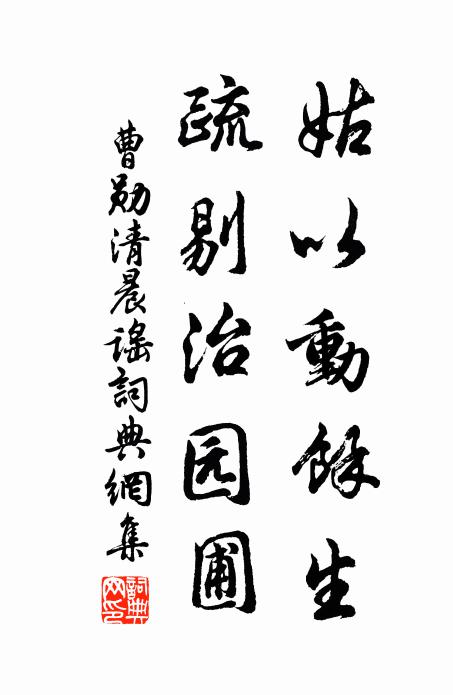 姑以動餘生
疏剔治园圃
曹勋清晨謠詞典網集
詞典网印